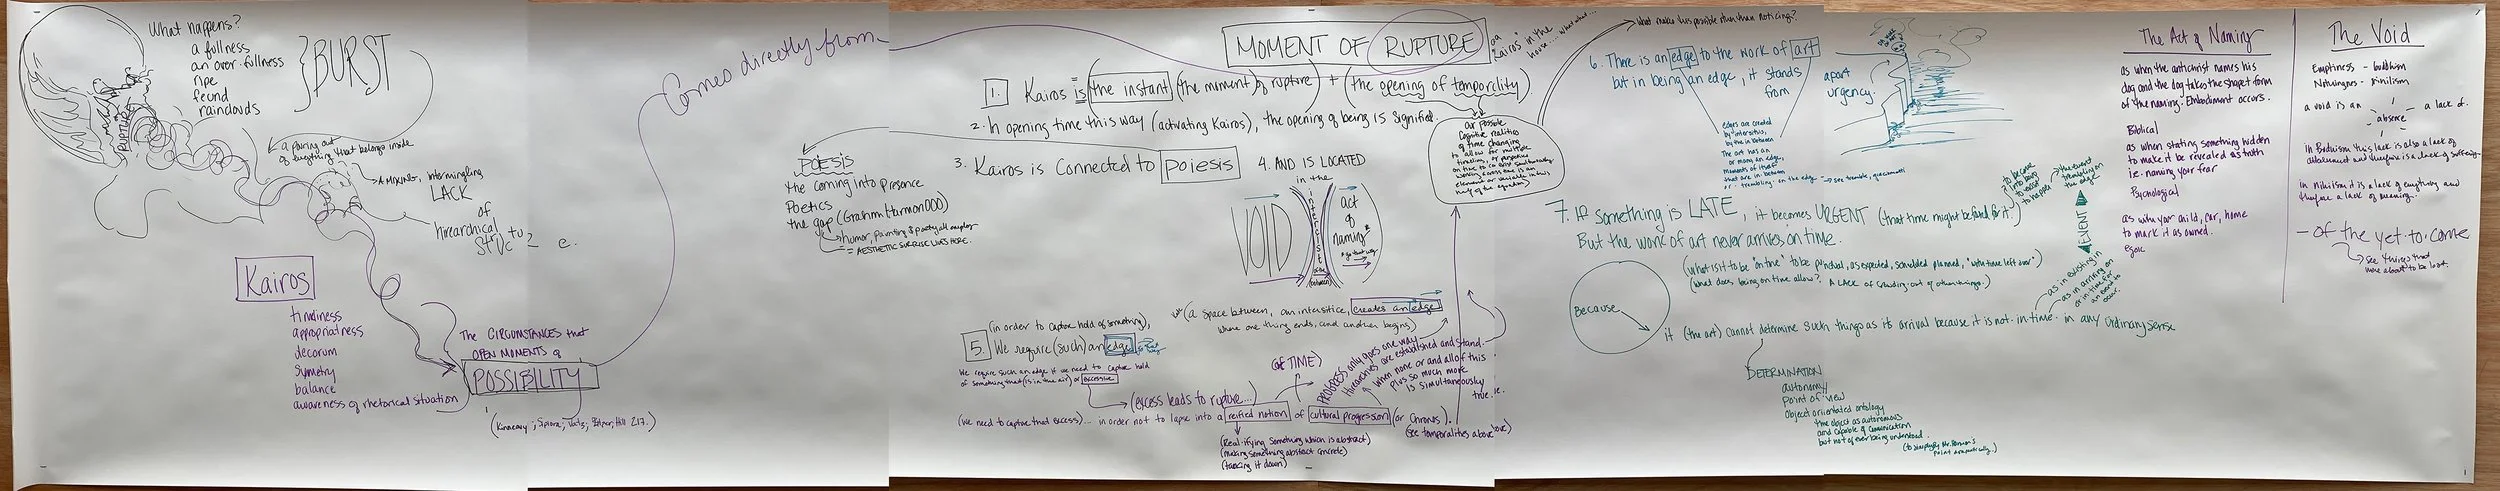 What happens?
a fullness
an over-fullness
ripe
fecund
rainclouds
BURST
MOMENT OF RUPTURE
a pouring out
of everything that belongs inside
A MIXING, intermingling
LACK
of
hierarchical
Kairos
timeliness
appropriatness
decorum
symetry
balance
awareness of rhetorical situation
The CIRCUMSTANCES that
OPEN MOMENTS of
POSSIBILITY
Comes directly from
MOMENT OF RUPTURE
"Kairos" in the
house...
1. Kairos is (the instant (the moment) of rupture) + (the opening of temporality)
2. In opening time this way (activating Kairos), the opening of being is signified.
3. Kairos is Connected to poiesis
POESIS
the coming into presence
Poetics
the gap (Graham Harmon OOO)
humor, painting & poetry all employ
= AESTHETIC SURPRISE LIVES HERE.
4. AND IS LOCATED
in the
VOID
act
of
naming*
(a space between, an interstice, creates an edge
where one thing ends, and another begins)
(in order to capture hold of something),
5. We require (such) an edge
We require such an edge if we need to capture hold
of something that (is in the air) or excessive
(excess leads to rupture...)
(of TIME)
(We need to capture that excess)... in order not to lapse into a reified notion of cultural progression (or Chronos).
(see temporalities above)
(Real-ifying something which is abstract)
(making something abstract concrete)
PROGRESS only goes one way
Hierarchies are established and stand.
When none or and all of this
plus so much more
is simultaneously
true. i.e.
our possible
cognitive realities
of time changing
to allow for multiple
What makes this possible other than noticing?
6. There is an edge to the work of art
but in being an edge, it stands
from
apart
urgency.
edges are created
by interstices,
the in between
The art has an
or many an edge,
moments of itself
that are in between
or - trembling - on the edge
7. If something is LATE, it becomes URGENT (that time might be found for it.)
But the work of art never arrives on time.
(what is it to be "on time" to be punctual, as expected, scheduled planned, "with time left over")
(What does being on time allow? A LACK of crowding out of other things.)
Because
it (the art) cannot determine such things as its arrival because it is not in-time in any ordinary sense
EVENT
the event
trembling on
the edge
as in existing in
as in arriving on
or in time for
an event to
occur.
DETERMINATION
autonomy
point of view
Object orientated ontology
the object as autonomous
and capable of communication
but not of ever being understood.
The Act of Naming
as when the antichrist names his
dog and the dog takes the shape & form
of the naming. Embodiment occurs.
Biblical
as when stating something hidden
to make it be revealed as truth
i.e. naming your fear
Psychological
as with your child, car, home
to mark it as owned.
egoic
The Void
Emptiness - buddhism
Nothingness - nihilism
a void is an
absence
a lack of.
in Buddhism this lack is also a lack of
attachment and therefore is a lack of suffering
in nihilism it is a lack of everything and
therefore a lack of meaning.
- of the yet-to-come
see things that
were about to be lost.